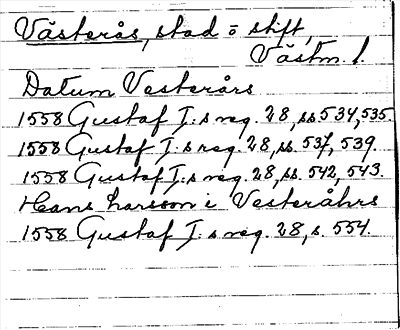 Västerås, stad o stift,
Västm. l.
Datum Vesterårs
1558 Gustaf I:s reg. 28, ss. 534, 535.
1558 Gustaf I:s reg. 28, ss. 537, 539.
1558 Gustaf I:s reg. 28, ss. 542, 543.
Hans Larsson i Vesteråhrs
1558 Gustaf I:s reg. 28, s. 554.